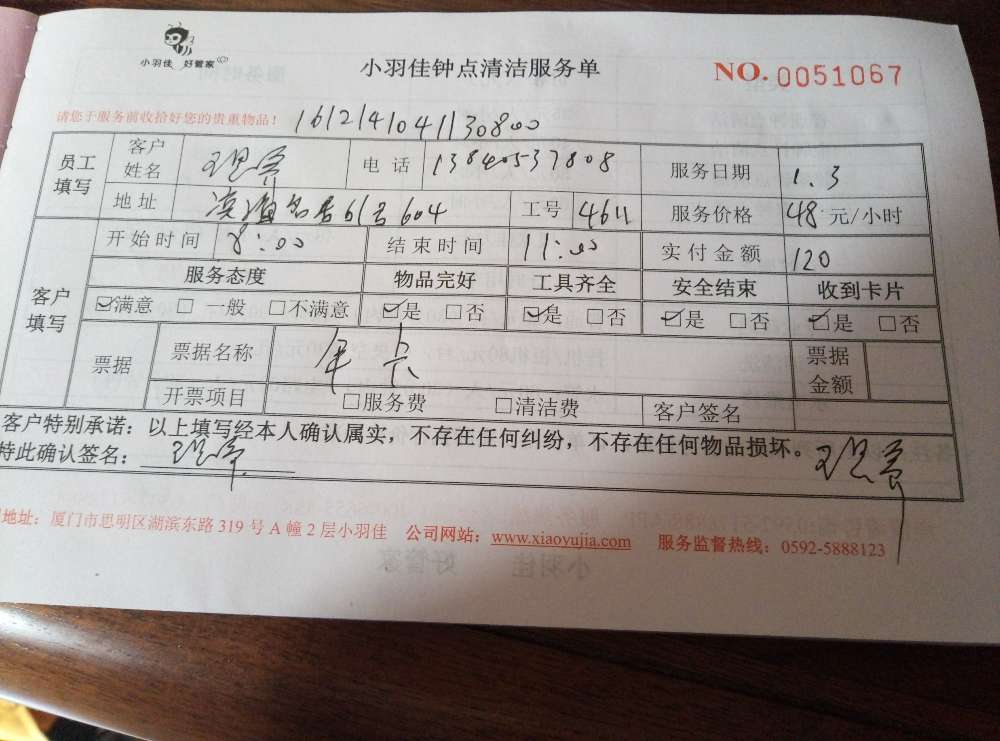 小羽佳 好管家
小羽佳钟点清洁服务单
NO. 0051067
请您于服务前收拾好您的贵重物品！
员工填写 客户姓名 电话 13840537808 服务日期 1.3
地址 工号 4611 服务价格 48 元/小时
客户填写 开始时间 8:00 结束时间 11:00 实付金额 120
服务态度 物品完好 工具齐全 安全结束 收到卡片
☑满意 □一般 □不满意 ☑是 □否 ☑是 □否 ☑是 □否 ☑是 □否
票据 票据名称 年卡 票据金额
开票项目 □服务费 □清洁费 客户签名
客户特别承诺：以上填写经本人确认属实，不存在任何纠纷，不存在任何物品损坏。
特此确认签名：
地址：厦门市思明区湖滨东路 319 号 A 幢 2 层小羽佳 公司网站：www.xiaoyujia.com 服务监督热线：0592-5888123